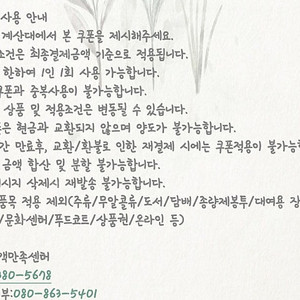 사용 안내
계산대에서 본 쿠폰을 제시해주세요.
조건은 최종결제금액 기준으로 적용됩니다.
한하여 1인 1회 사용 가능합니다.
쿠폰과 중복사용이 불가능합니다.
상품 및 적용조건은 변동될 수 있습니다.
은 현금과 교환되지 않으며 양도가 불가능합니다.
간 만료후, 교환/환불로 인한 재결제 시에는 쿠폰적용이 불가능합
금액 합산 및 분할 불가능합니다.
시지 삭제시 재발송 불가능합니다.
품목 적용 제외(주류/무알콜류/도서/담배/종량제봉투/대여용 장
/문화센터/푸드코트/상품권/온라인 등)
객만족센터
080-5678
부:080-863-5401